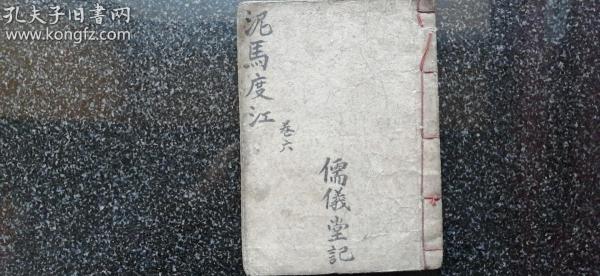 孔夫子旧书网
www.kongfz.com
泥馬度江
卷六
儒儀堂記